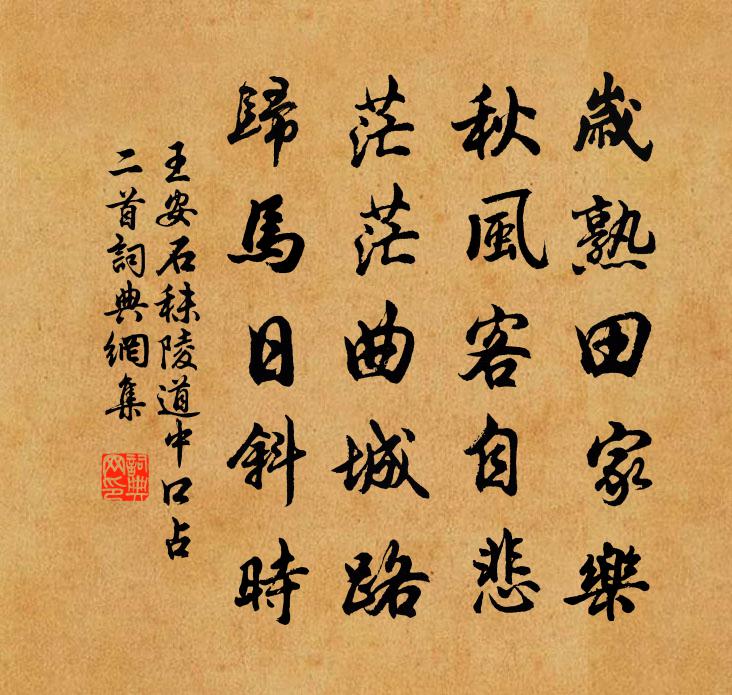 歲熟田家樂
秋風客自悲
茫茫曲城路
歸馬日斜時
王安石秣陵道中口占
二首詞典網集
詞典網印